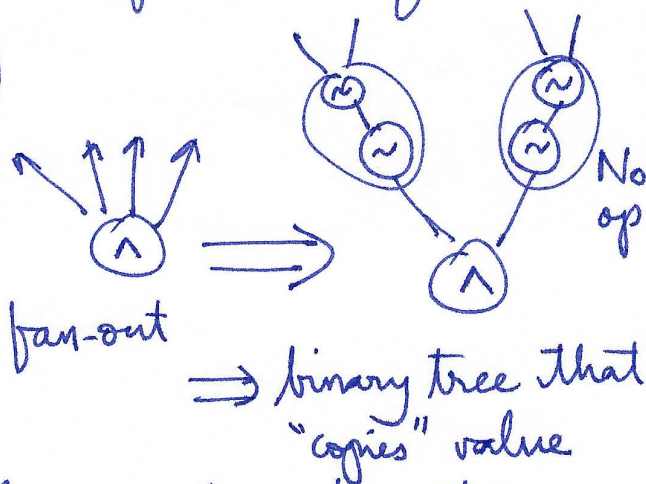 ~ ~
~ ~
No
op
∧
∧
fan-out
⇒ binary tree that
"copies" value